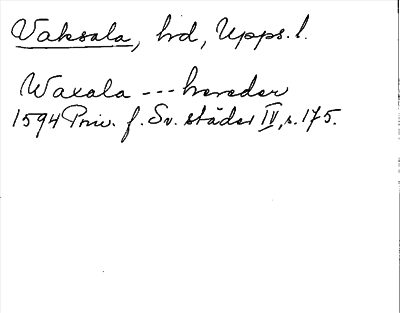 Vaksala, hd, Upps. l.
Waxala --- hereder
1594 Priv. f. Sv. städer IV, s. 175.